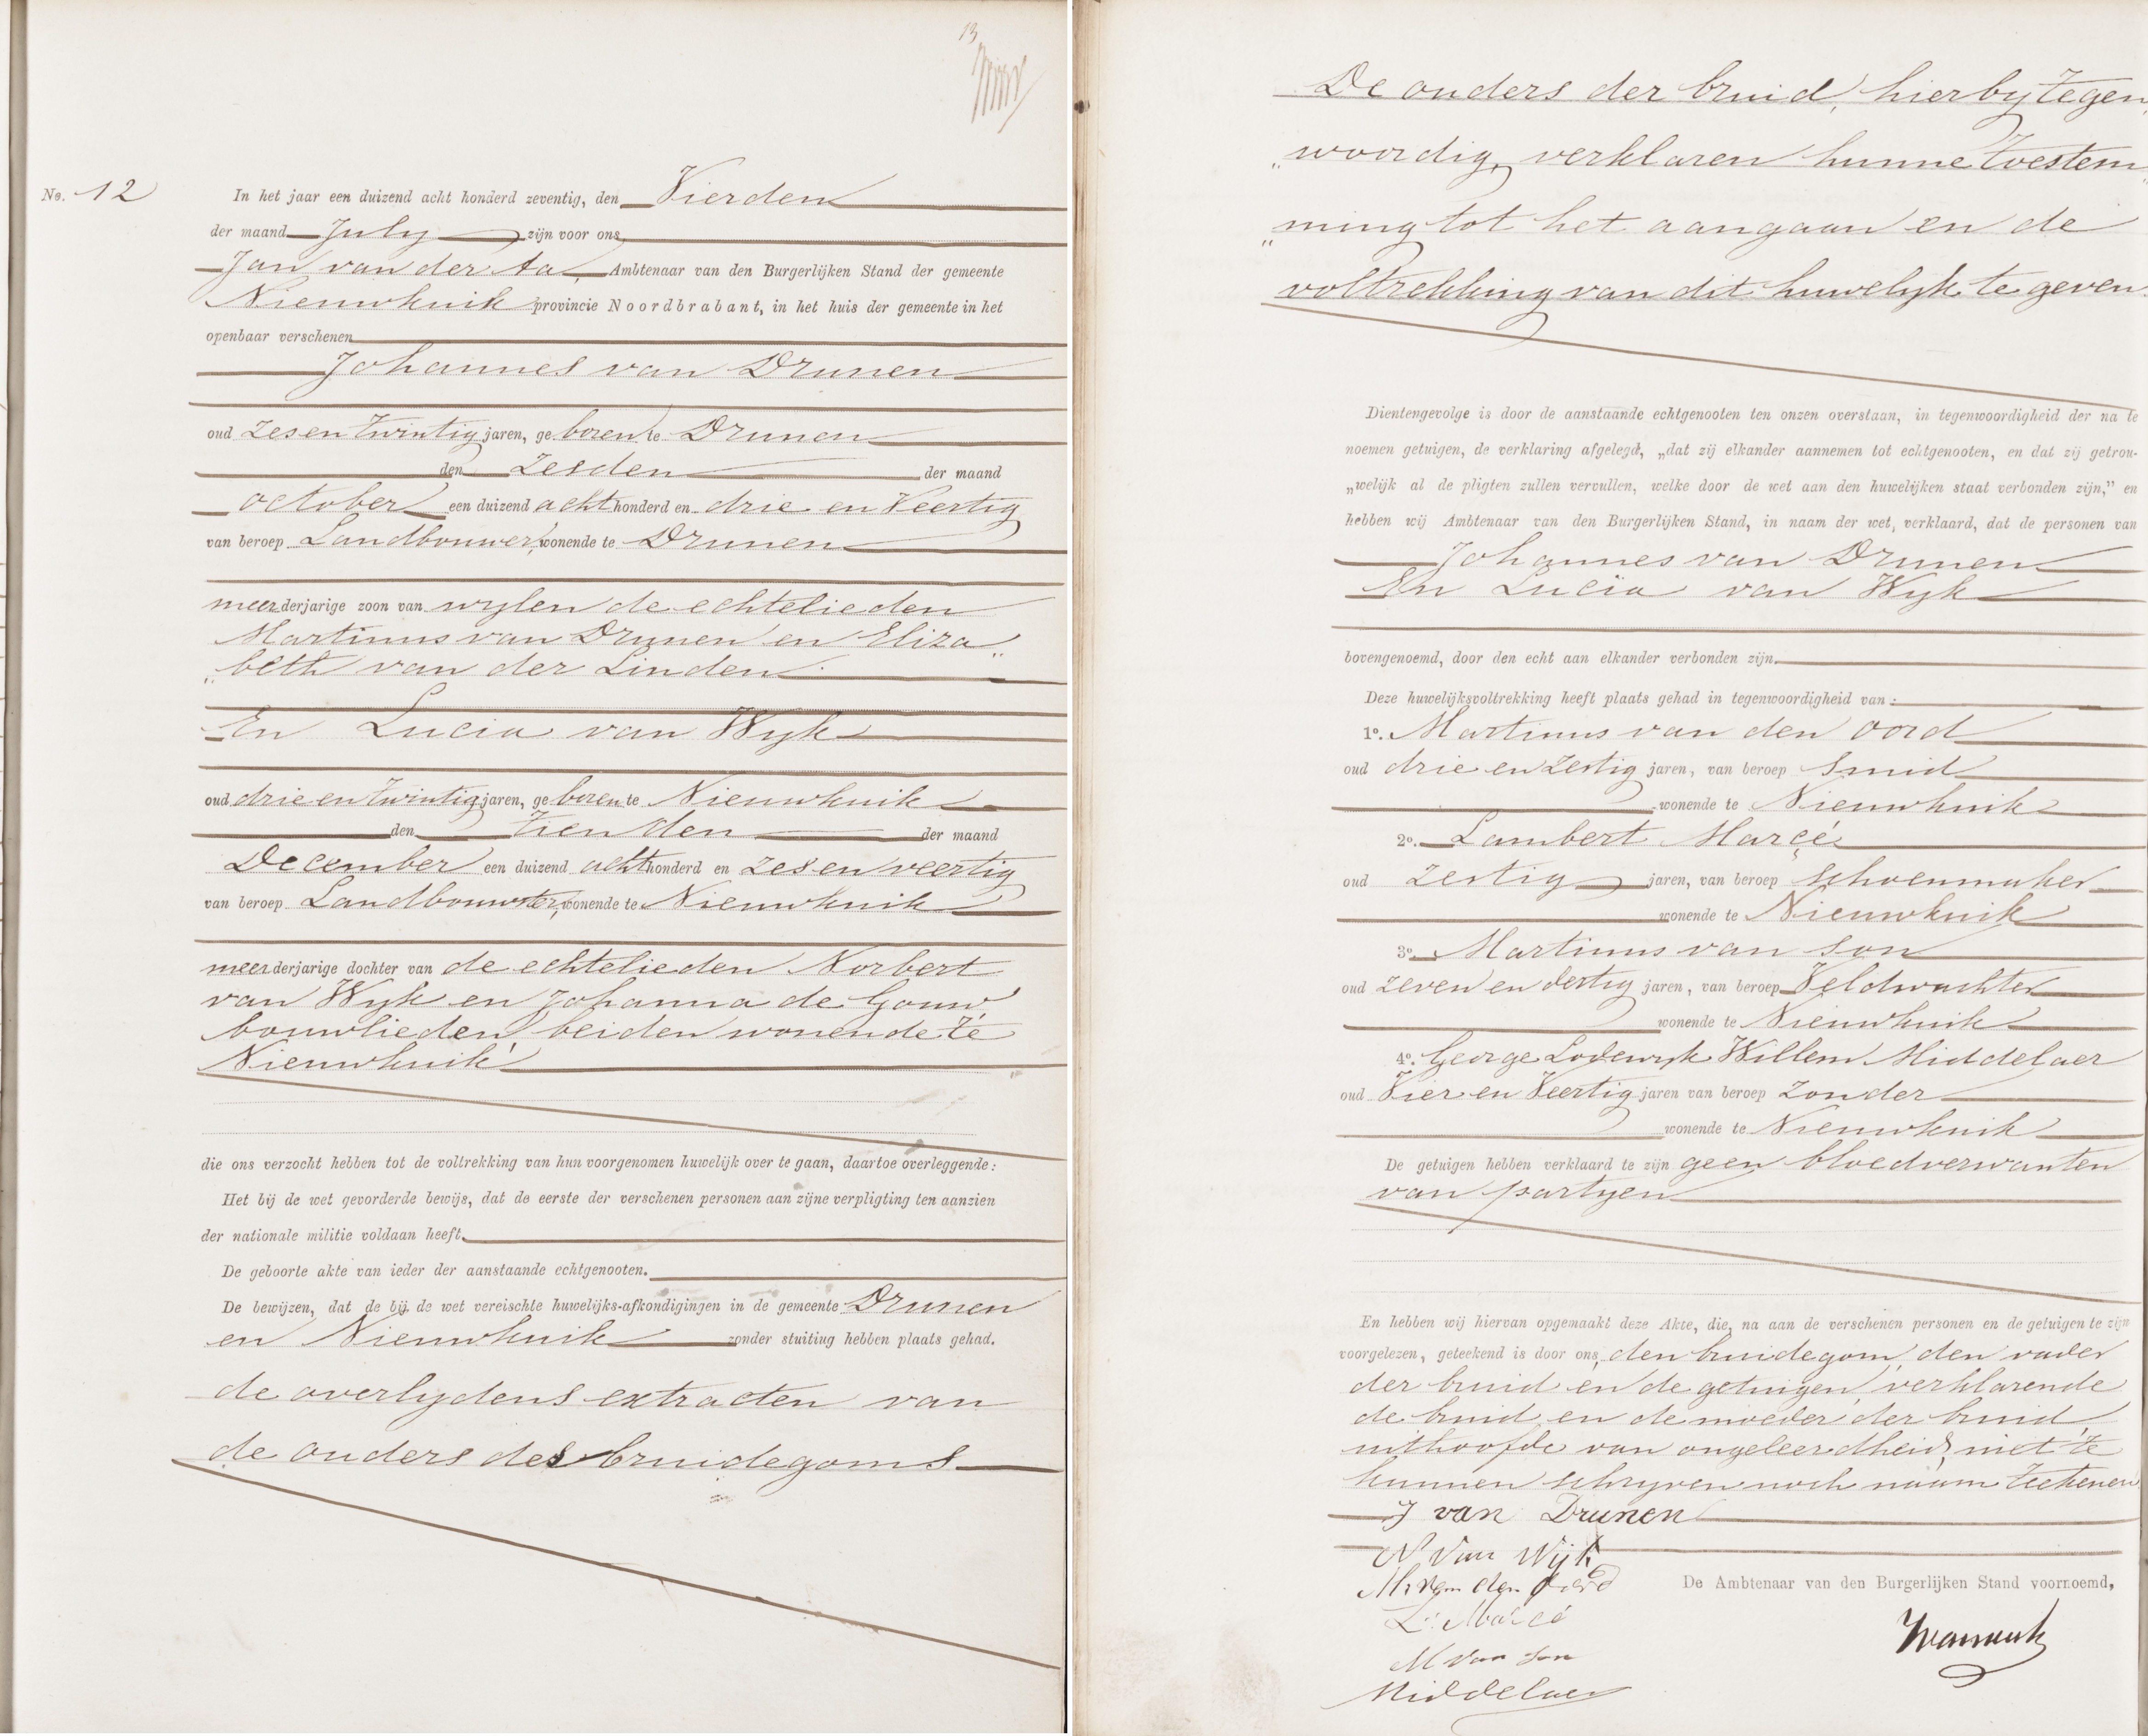 13
No. 12
In het jaar een duizend acht honderd zeventig, den Vierden
der maand July zijn voor ons
Jan van der Aa, Ambtenaar van den Burgerlijken Stand der gemeente
Nieuwkuik provincie Noordbrabant, in het huis der gemeente in het
openbaar verschenen
Johannes van Drunen
oud zes en twintig jaren, geboren te Drunen
den zesden der maand
october een duizend acht honderd en drie en Veertig
van beroep Landbouwer, wonende te Drunen
meerderjarige zoon van wylen de echtelieden
Martinus van Drunen en Eliza„
„beth van der Linden
En Lucia van Wyk
oud drie en twintig jaren, geboren te Nieuwkuik
den tienden der maand
December een duizend acht honderd en zes en veertig
van beroep Landbouwster, wonende te Nieuwkuik
meerderjarige dochter van de echtelieden Norbert
van Wyk en Johanna de Gouw,
bouwlieden, beiden wonende te
Nieuwkuik
die ons verzocht hebben tot de voltrekking van hun voorgenomen huwelijk over te gaan, daartoe overleggende:
Het bij de wet gevorderde bewijs, dat de eerste der verschenen personen aan zijne verpligting ten aanzien
der nationale militie voldaan heeft.
De geboorte akte van ieder der aanstaande echtgenooten.
De bewijzen, dat de bij de wet vereischte huwelijks-afkondigingen in de gemeente Drunen
en Nieuwkuik zonder stuiting hebben plaats gehad.
de overlydens extracten van
de ouders des bruidegoms
De ouders der bruid, hierby tegen„
„woordig, verklaren hunne toestem„
„ming tot het aangaan en de
voltrekking van dit huwelyk te geven.
Dientengevolge is door de aanstaande echtgenooten ten onzen overstaan, in tegenwoordigheid der na te
noemen getuigen, de verklaring afgelegd, „dat zij elkander aannemen tot echtgenooten, en dat zij getrou-
„welijk al de pligten zullen vervullen, welke door de wet aan den huwelijken staat verbonden zijn,” en
hebben wij Ambtenaar van den Burgerlijken Stand, in naam der wet, verklaard, dat de personen van
Johannes van Drunen
En Lucia van Wyk
bovengenoemd, door den echt aan elkander verbonden zijn.
Deze huwelijksvoltrekking heeft plaats gehad in tegenwoordigheid van:
1o. Martinus van den Oord
oud drie en zestig jaren, van beroep Smid
wonende te Nieuwkuik
2o. Lambert Marcé
oud zestig jaren, van beroep schoenmaker
wonende te Nieuwkuik
3o. Martinus van Son
oud zeven en dertig jaren, van beroep Veldwachter
wonende te Nieuwkuik
4o. George Lodewyk Willem Middelaer
oud Vier en Veertig jaren van beroep zonder
wonende te Nieuwkuik
De getuigen hebben verklaard te zijn geen bloedverwanten
van partyen
En hebben wij hiervan opgemaakt deze Akte, die, na aan de verschenen personen en de getuigen te zijn
voorgelezen, geteekend is door ons, den bruidegom, den vader
der bruid en de getuigen, verklarende
de bruid, en de moeder der bruid
uithoofde van ongeleerdheid, niet te
kunnen schryven noch naam teekenen
J van Drunen
N van Wijk
M van den Oord
L: Marcé
De Ambtenaar van den Burgerlijken Stand voornoemd,
M van son
Middelaer